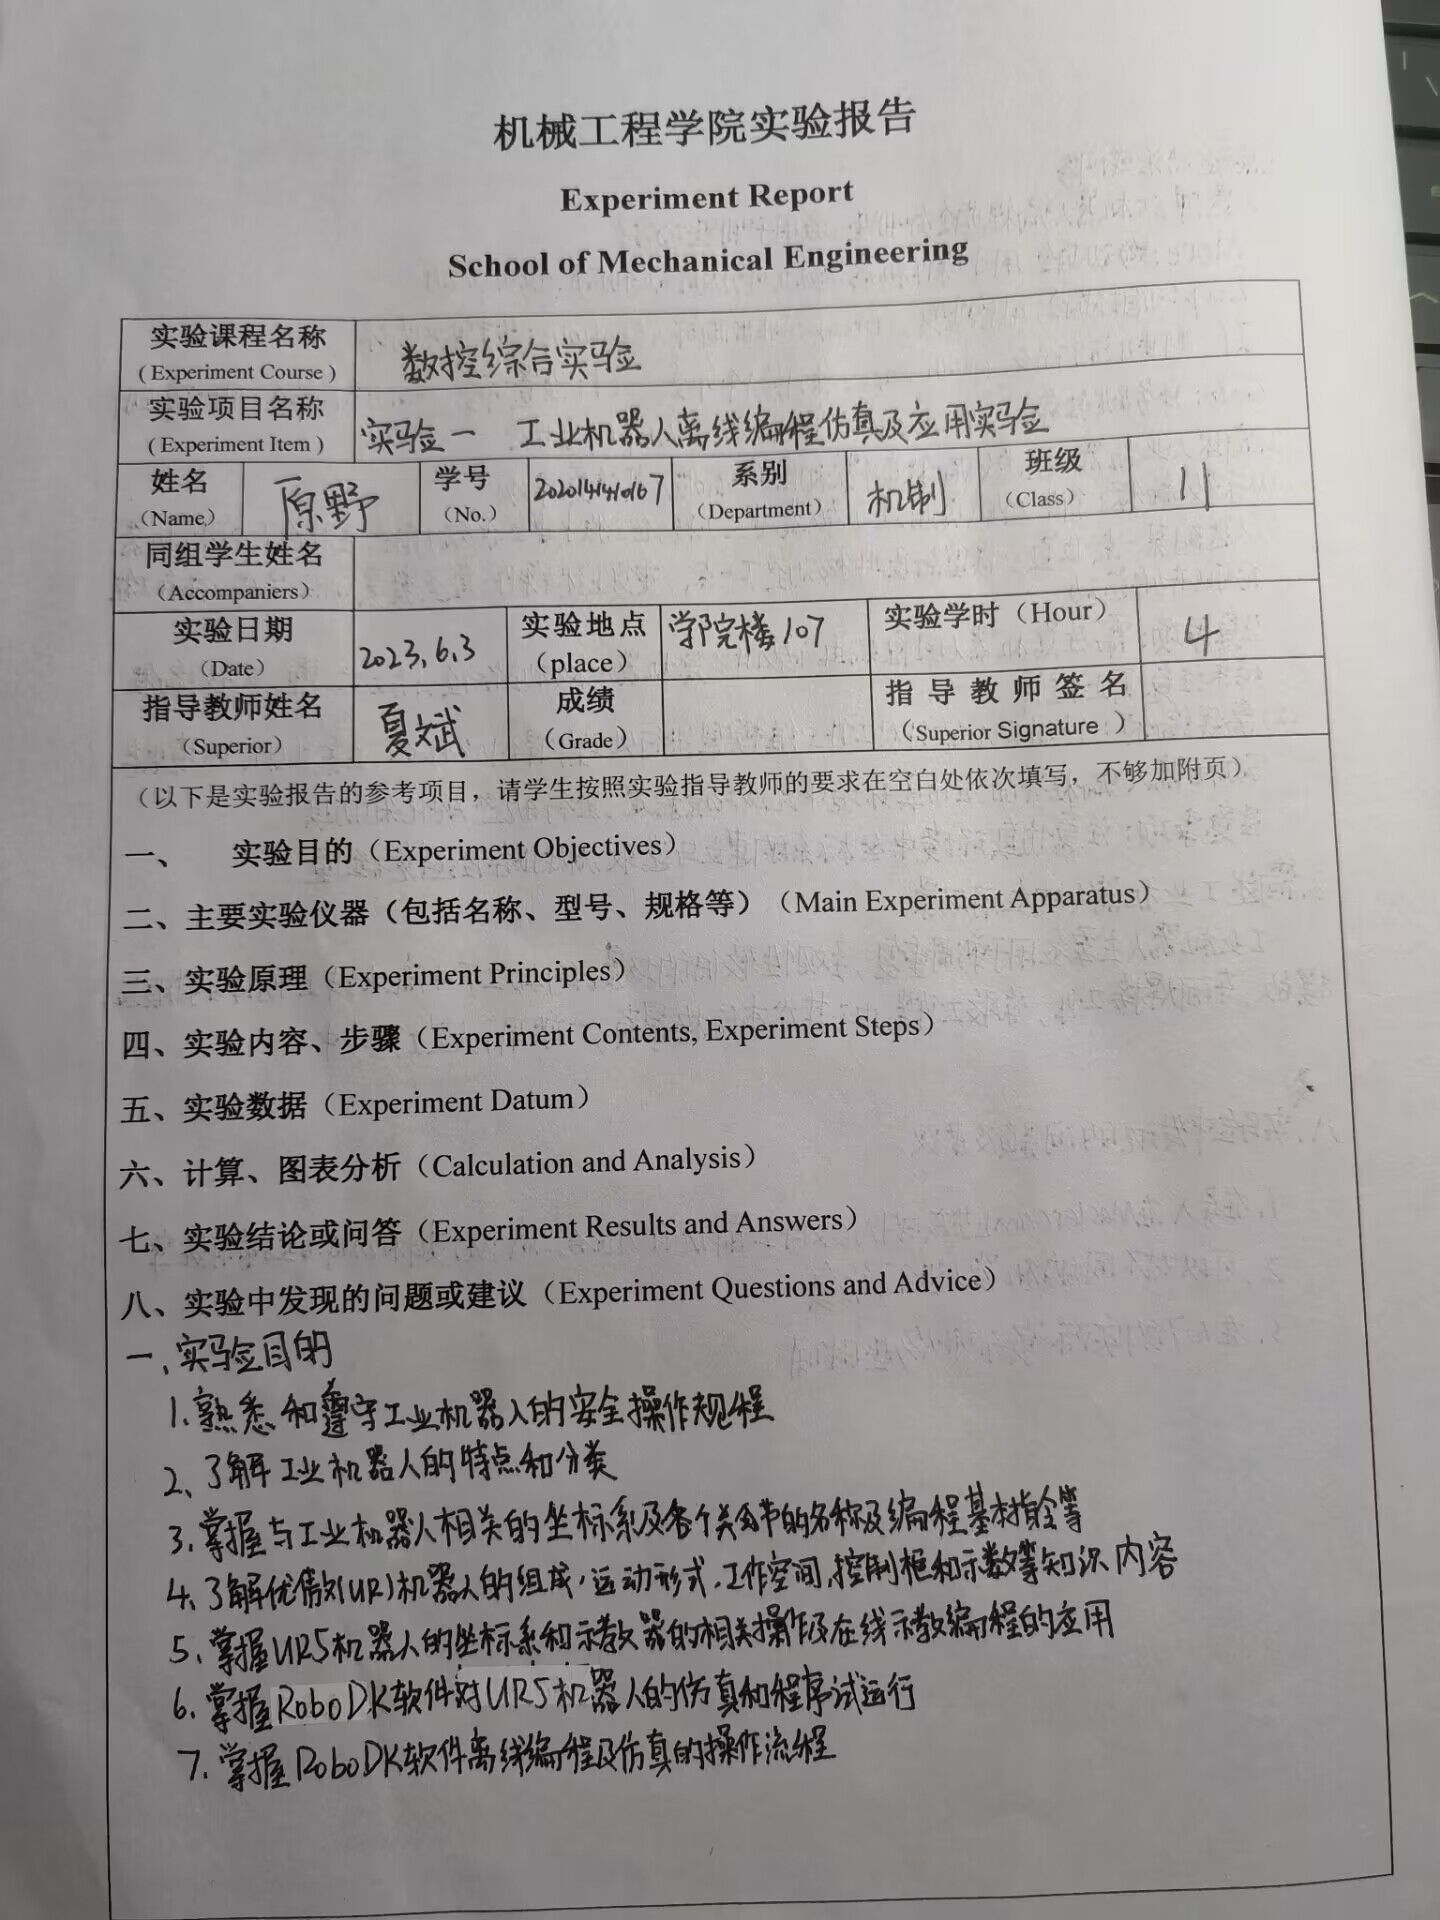 机械工程学院实验报告
Experiment Report
School of Mechanical Engineering
实验课程名称
(Experiment Course)
数控综合实验
实验项目名称
(Experiment Item)
实验一 工业机器人离线编程仿真及应用实验
姓名
(Name)
原野
学号
(No.)
202014140167
系别
(Department)
机制
班级
(Class)
11
同组学生姓名
(Accompaniers)
实验日期
(Date)
2023.6.3
实验地点
(place)
学院楼107
实验学时(Hour)
4
指导教师姓名
(Superior)
夏斌
成绩
(Grade)
指导教师签名
(Superior Signature )
(以下是实验报告的参考项目,请学生按照实验指导教师的要求在空白处依次填写,不够加附页)
一、 实验目的(Experiment Objectives)
二、主要实验仪器(包括名称、型号、规格等)(Main Experiment Apparatus)
三、实验原理(Experiment Principles)
四、实验内容、步骤(Experiment Contents, Experiment Steps)
五、实验数据(Experiment Datum)
六、计算、图表分析(Calculation and Analysis)
七、实验结论或问答(Experiment Results and Answers)
八、实验中发现的问题或建议(Experiment Questions and Advice)
一、实验目的
1.熟悉和遵守工业机器人的安全操作规程
2、了解工业机器人的特点和分类
3.掌握与工业机器人相关的坐标系及各个关节的名称及编程基本指令等
4.了解优傲(UR)机器人的组成,运动形式,工作空间,控制柜和示教等知识内容
5、掌握UR5机器人的坐标系和示教器的相关操作及在线示教编程的应用
6、掌握RoboDK软件对UR5机器人的仿真和程序试运行
7.掌握RoboDK软件离线编程及仿真的操作流程